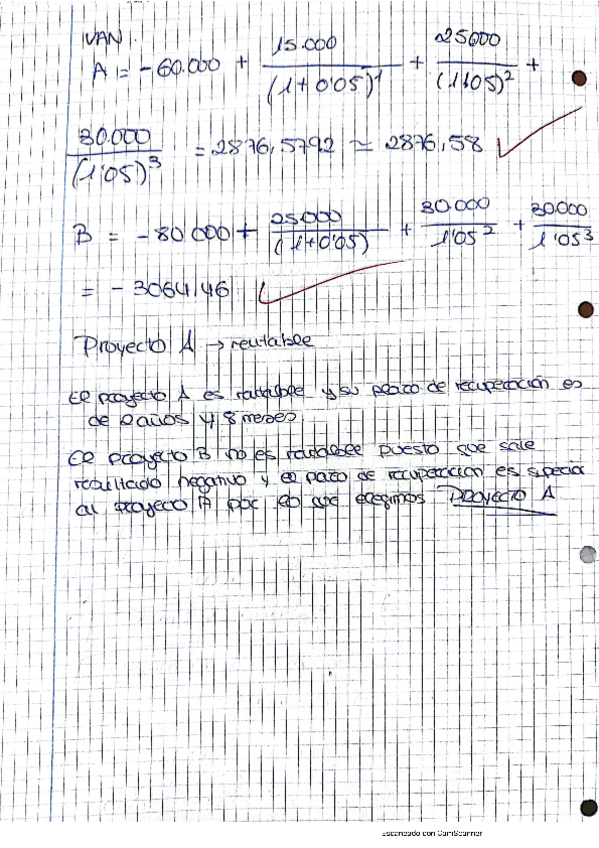 VAN.
A = - 60.000 + 15.000 / (1+0'05)^1 + 25000 / (1'05)^2 +
30.000 / (1'05)^3 = 2876,5792 ≃ 2876,58
B = - 80.000 + 25.000 / (1+0'05) + 30.000 / 1'05^2 + 30.000 / 1'05^3
= - 3064,46
Proyecto A → rentable
El proyecto A es rentable y su plazo de recuperación es
de 2 años y 8 meses.
El proyecto B no es rentable puesto que sale
resultado negativo y el plazo de recuperación es superior
al proyecto A por lo que elegimos Proyecto A
Escaneado con CamScanner